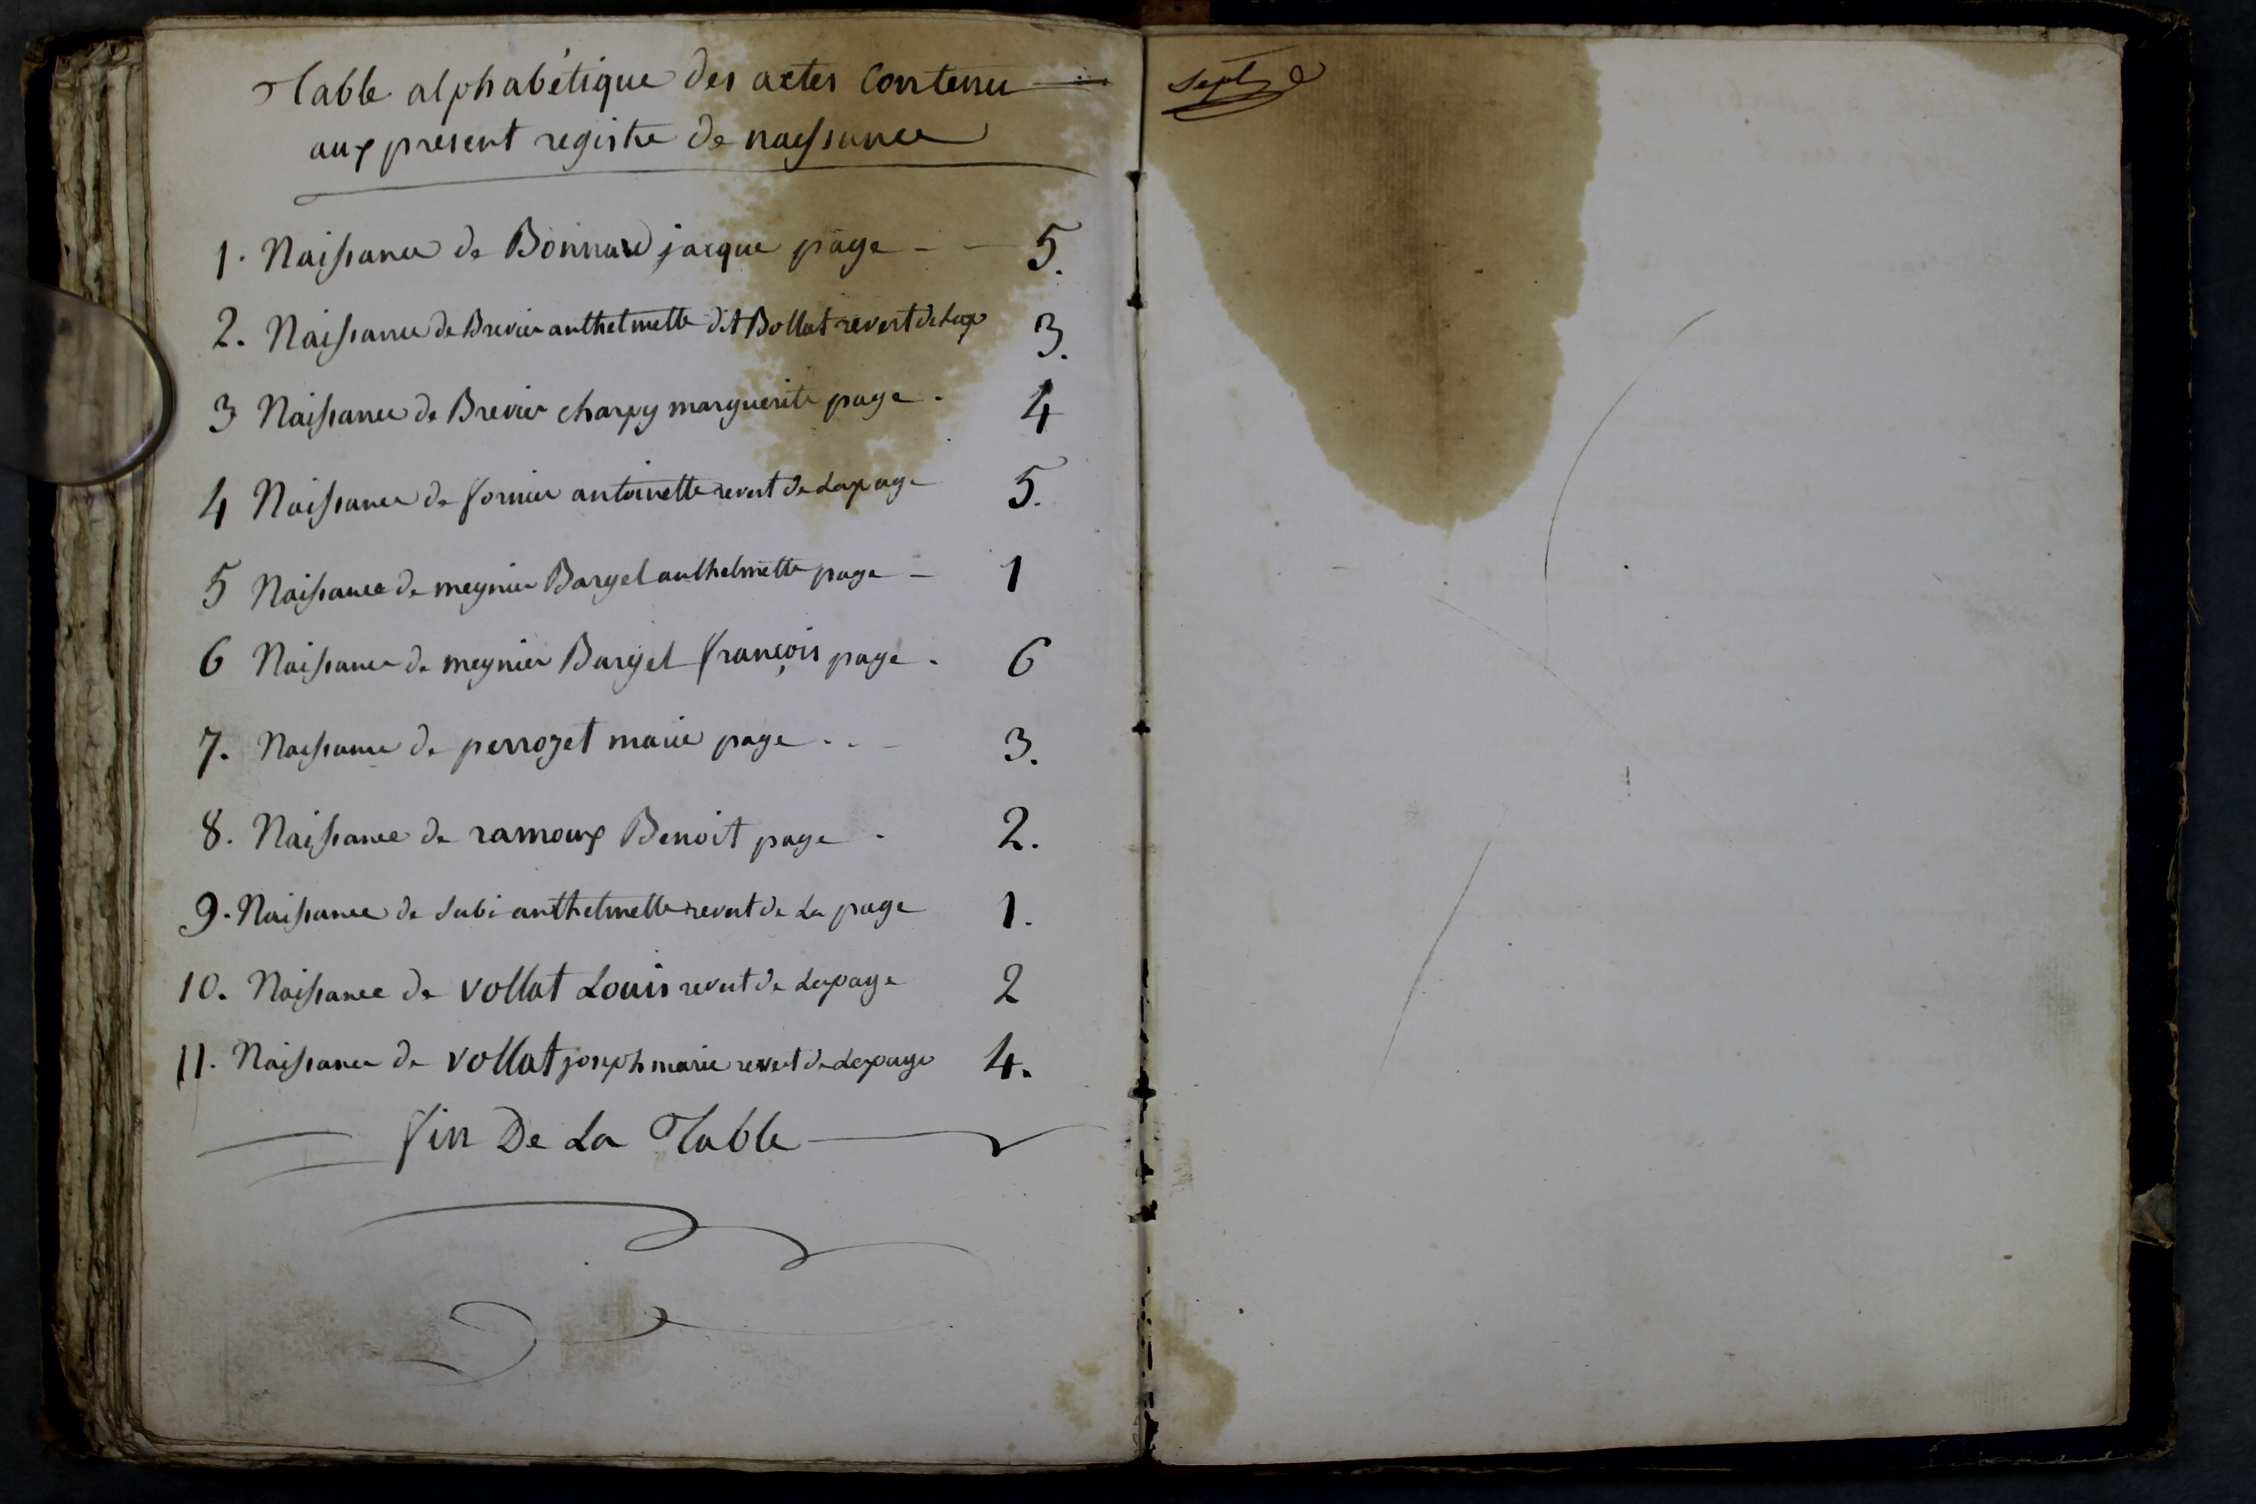 Table alphabétique des actes Contenu
aux présent registre de naissance
1. Naissance de Bonnard jacque page - - 5.
2. Naissance de Brevier anthelmette dit Bollat revert de La p 3.
3 Naissance de Brevier charpy marguerite page - 4
4 Naissance de fornier antoinette revert de La page 5.
5 Naissance de meynier Bargel anthelmette page - 1
6 Naissance de meynier Bargel françois page - 6
7. Naissance de perrozet marie page - - - 3.
8. Naissance de ramoux Benoit page - 2.
9. Naissance de Subi anthelmette revert de La page 1.
10. Naissance de vollat Louis revert de La page 2
11. Naissance de vollat joseph marie revert de La page 4.
fin De La Table